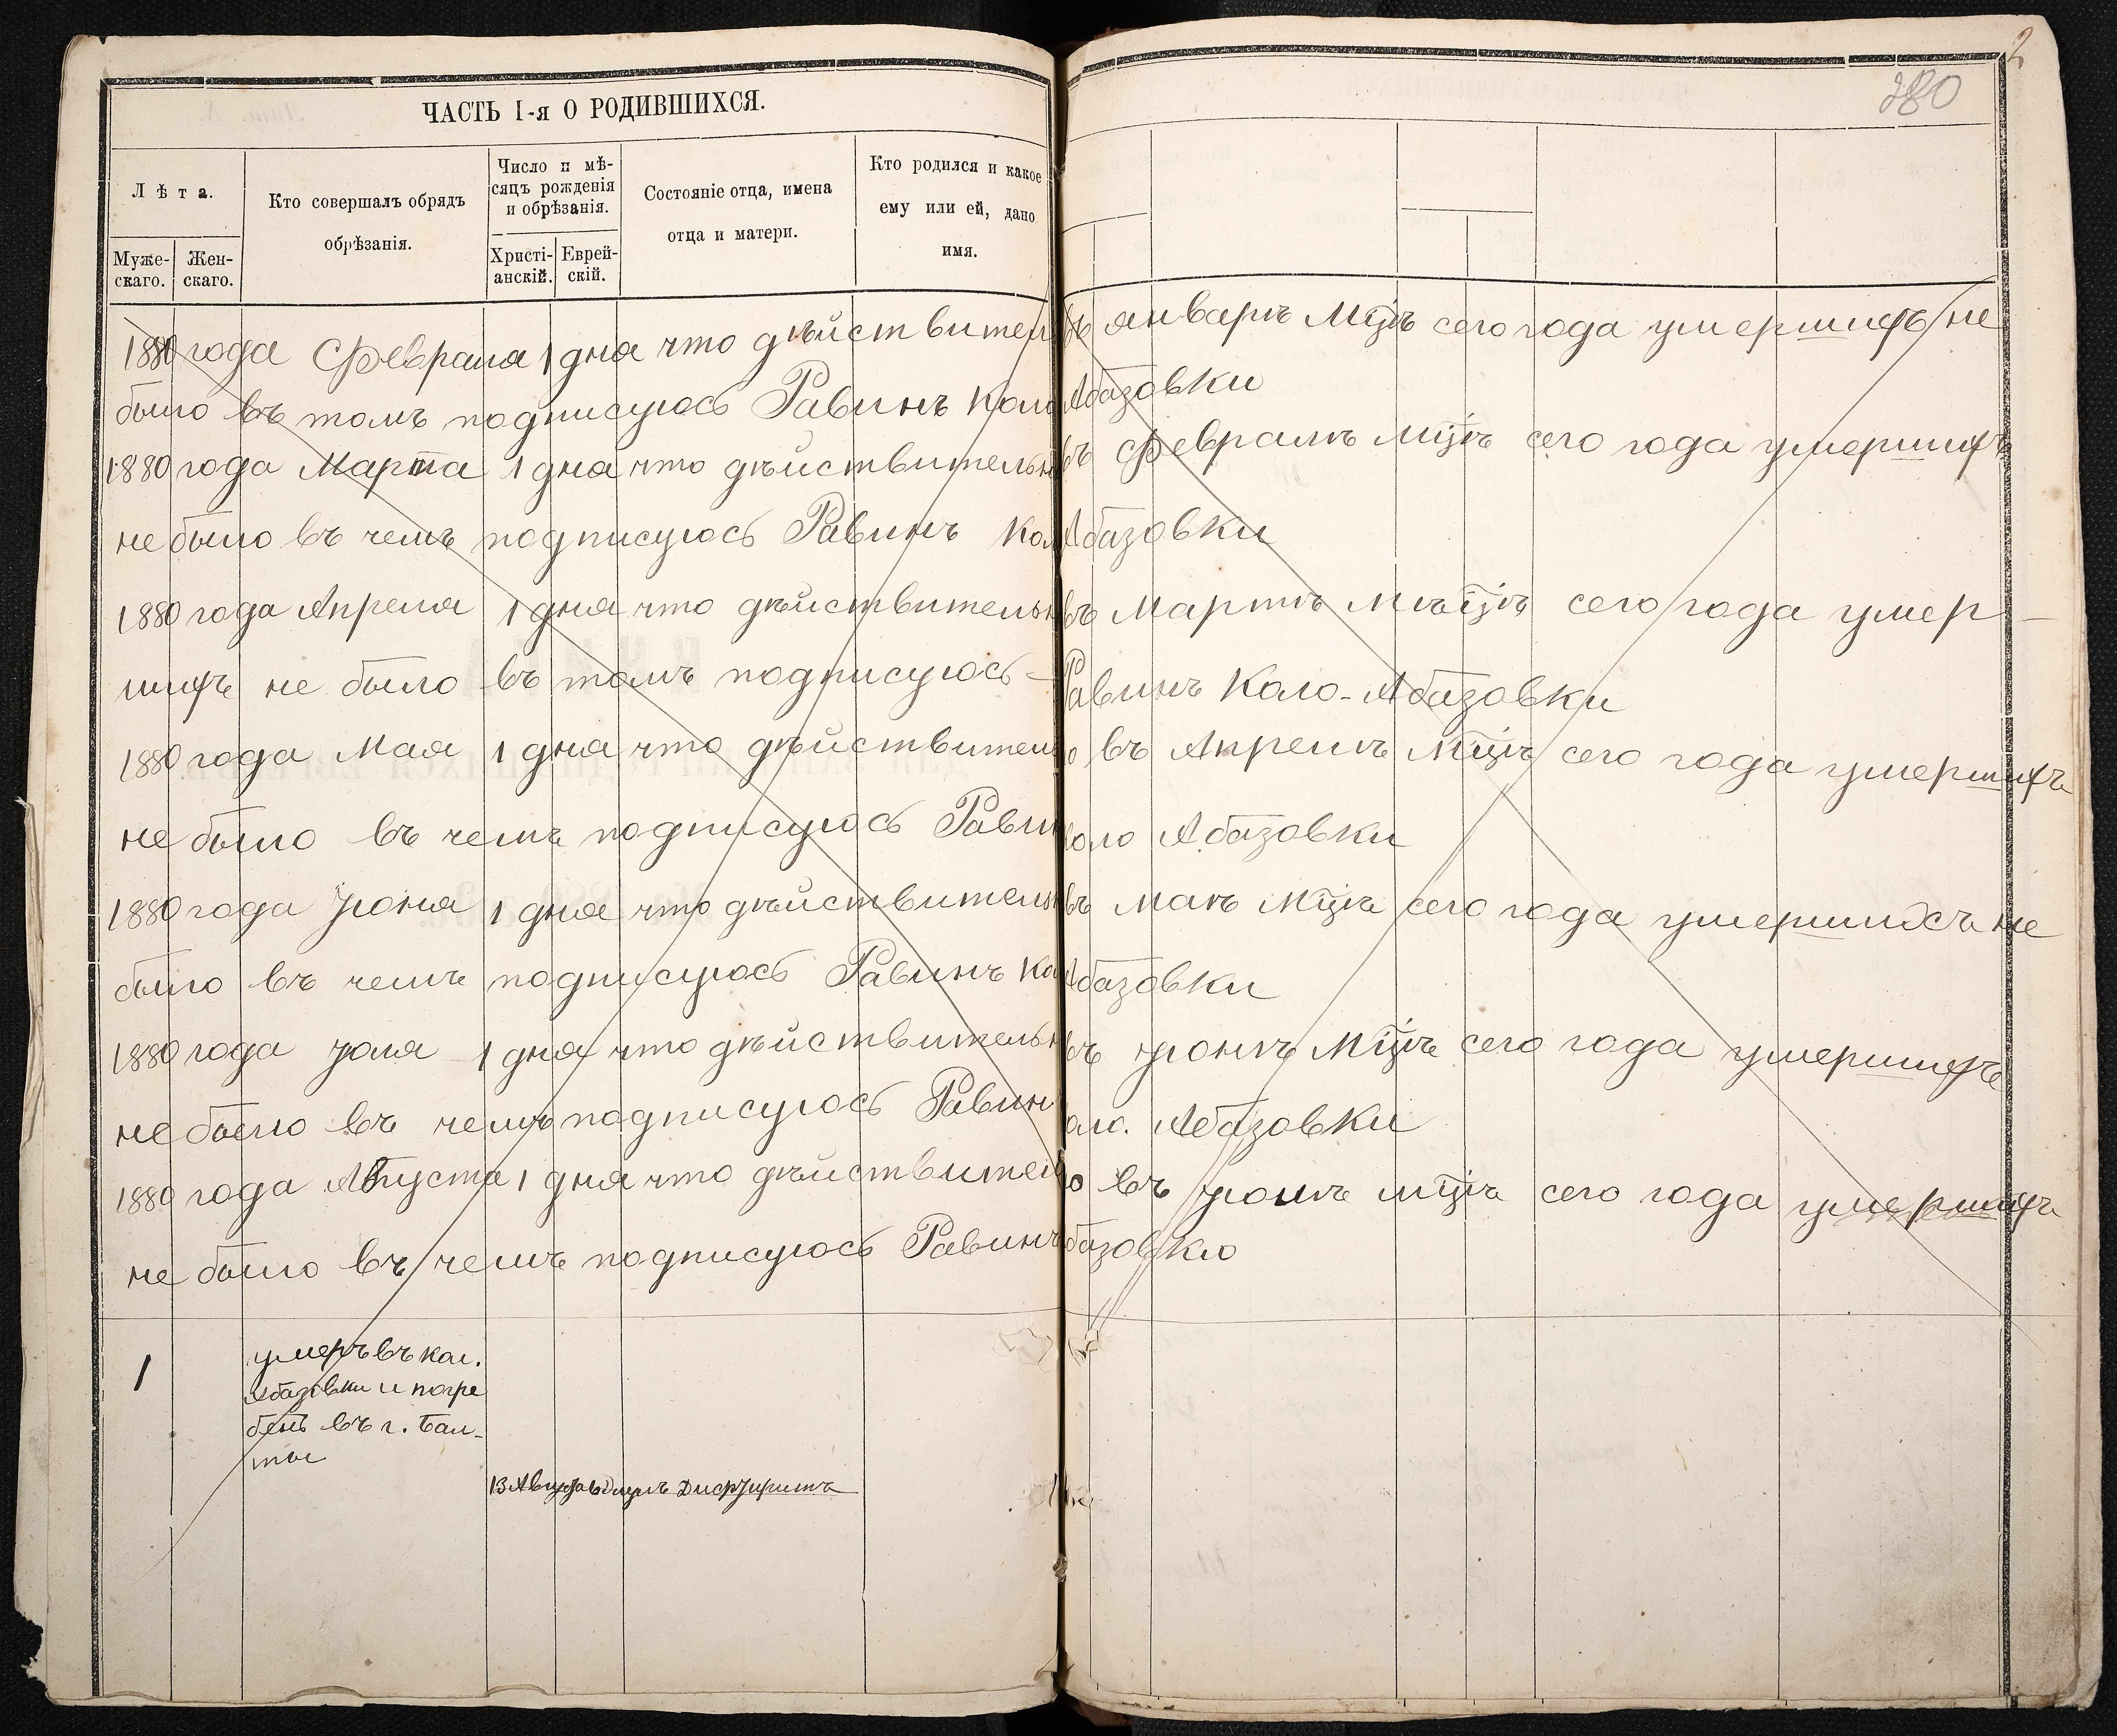 2
280
ЧАСТЬ I-я О РОДИВШИХСЯ.
Лѣта.
Муже-
скаго.
Жен-
скаго.
Кто совершалъ обрядъ
обрѣзанія.
Число и мѣ-
сяцъ рожденія
и обрѣзанія.
Христі-
анскій.
Еврей-
скій.
Состояніе отца, имена
отца и матери.
Кто родился и какое
ему или ей, дано
имя.
1880 года Февраля 1 дня что дѣйствител въ январѣ мцѣ сего года умершихъ не
было въ томъ подписуюсь Равинъ Коло Абазовки
1880 года Марта 1 дня что дѣйствительн въ Февралѣ мцѣ сего года умершихъ
не было въ чемъ подписуюсь Равинъ Кол Абазовки
1880 года Апреля 1 дня что дѣйствительн въ Мартѣ мѣцѣ сего года умер-
шихъ не было въ томъ подписуюсь - Равинъ Коло-Абазовки
1880 года Мая 1 дня что дѣйствительно въ Апрелѣ мцѣ сего года умершихъ
не было въ чемъ подписуюсь Равин Коло Абазовки
1880 года Июня 1 дня что дѣйствительн въ маѣ мцѣ сего года умершихъ не
было въ чемъ подписуюсь Равинъ Ко Абазовки
1880 года Юля 1 дня что дѣйствительн въ Июнѣ мцѣ сего года умершихъ
не было въ чемъ подписуюсь Равин Коло. Абазовки
1880 года Августа 1 дня что дѣйствително въ мцѣ сего года умершихъ
не было въ чемъ подписуюсь Равинъ базовки
1
умеръ въ кол.
Абазовки и погре
бенъ въ г. Бал-
ты
13 Августа